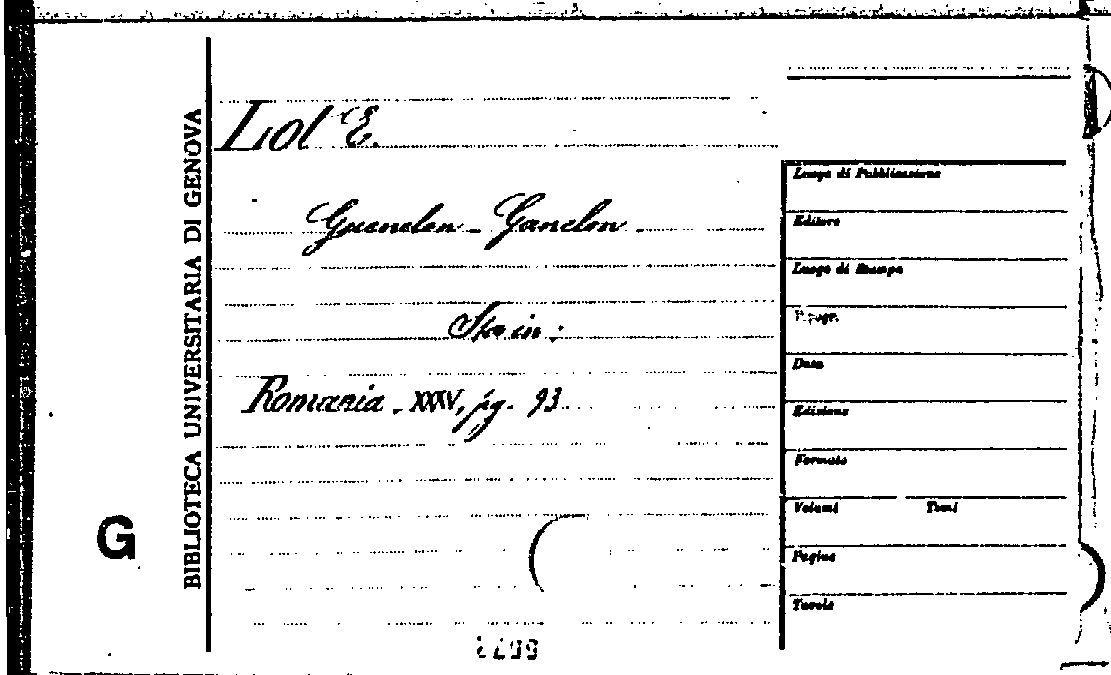 Lot E.
Guenelon - Ganelon
Sta in:
Romania - XXXV, pg. 93
BIBLIOTECA UNIVERSITARIA DI GENOVA
G
Luogo di Pubblicazione
Editore
Luogo di Stampa
Tipogr.
Data
Edizione
Formato
Volumi Tomi
Pagine
Tavole